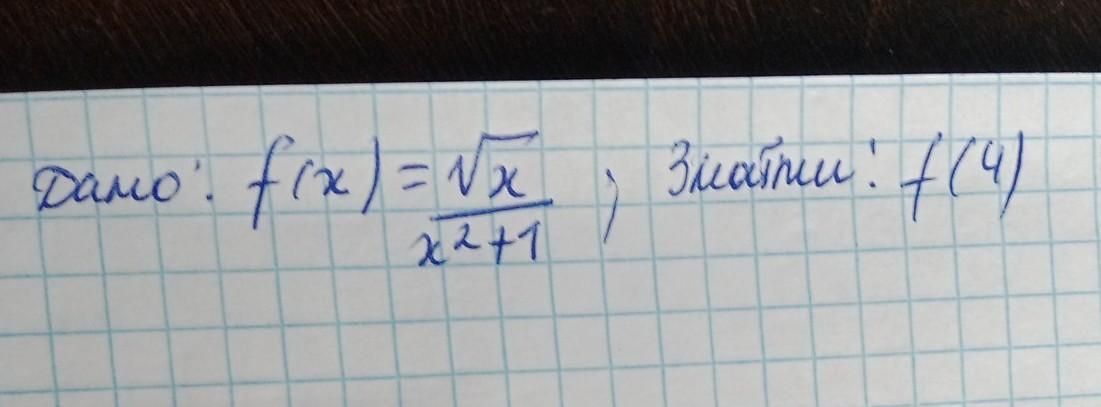 Дано: f(x) = √x / x²+1 ; Знайти: f(4)